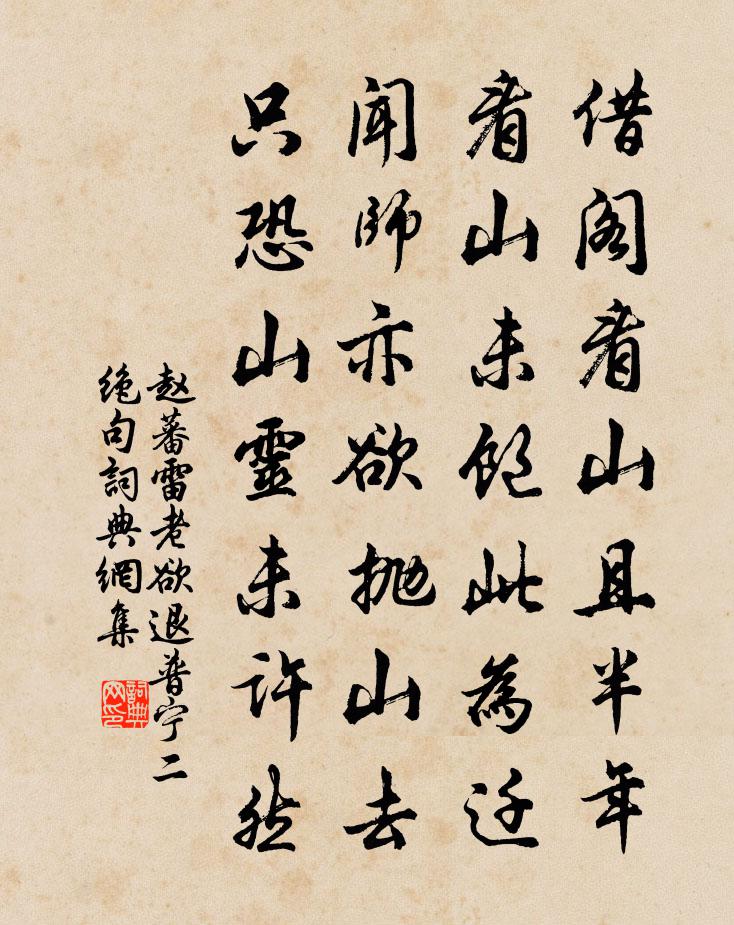 借阁看山且半年
看山未饱此為迁
闻師亦欲抛山去
只恐山靈未許然
赵蕃雷老欲退普宁二
绝句詞典網集
詞典
网印